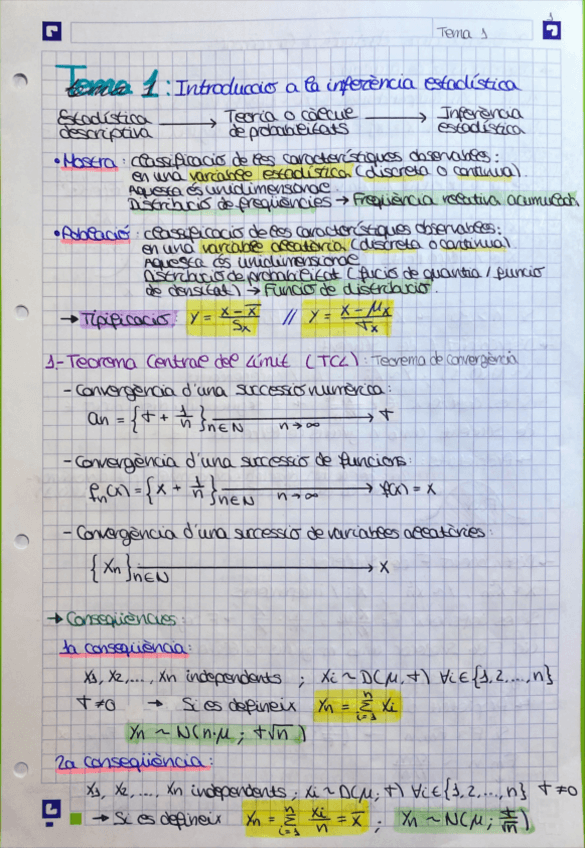 1
Tema 1
Tema 1: Introducció a la inferència estadística
Estadística descriptiva → Teoria o càlcul de probabilitats → Inferència estadística
• Mostra: classificació de les característiques observables:
en una variable estadística (discreta o continua).
Aquesta és unidimensional.
Distribució de freqüències → Freqüència relativa acumulada.
• Població: classificació de les característiques observables:
en una variable aleatòria (discreta o continua)
Aquesta és unidimensional
Distribució de probabilitat (fució de quantia / funció
de densitat) → Funció de distribució.
→ Tipificació: Y = (x - x̄)/Sx // Y = (x - μx)/σx
1.- Teorema Central del Límit (TCL): Teorema de convergència
- Convergència d'una successió numèrica:
an = {σ + 1/n} n∈N → σ n→∞
- Convergència d'una successió de funcions:
fn(x) = {x + 1/n} n∈N → f(x) = x n→∞
- Convergència d'una successió de variables aleatòries:
{Xn} n∈N → X
→ Conseqüències:
1a conseqüència:
X1, X2, ..., Xn independents ; Xi ~ D(μ, σ) ∀i∈{1,2,...,n}
σ ≠ 0 → Si es defineix Yn = Σ i=1 n Xi
Yn ~ N(n·μ ; σ√n)
2a conseqüència:
X1, X2, ..., Xn independents ; Xi ~ D(μ; σ) ∀i∈{1,2,...,n} σ ≠ 0
→ Si es defineix Yn = Σ i=1 n Xi/n = x̄ ; Yn ~ N(μ; σ/√n)